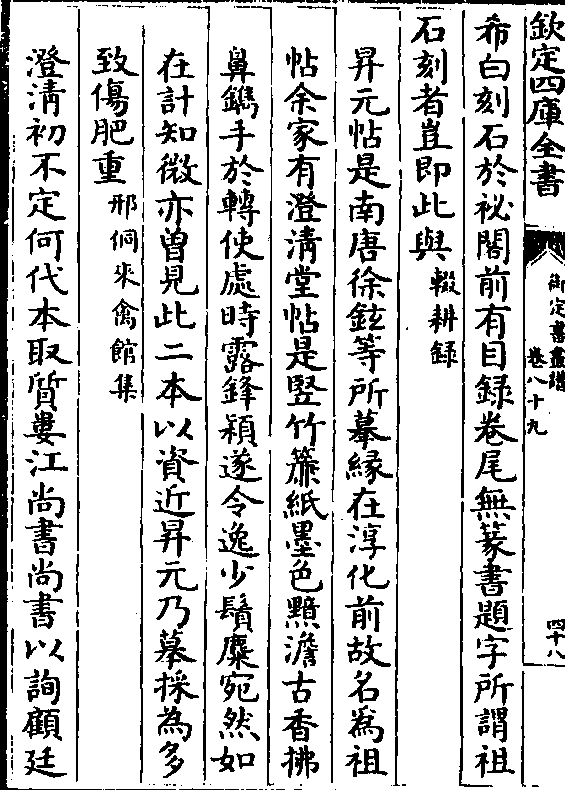 欽定四庫全書
御定書畫譜
卷八十九
四十八
希白刻石於祕閣前有目録卷尾無篆書題字所謂祖
石刻者豈即此與 輟耕録
昇元帖是南唐徐鉉等所摹緣在淳化前故名為祖
帖余家有澄清堂帖是竪竹簾紙墨色黯澹古香拂
鼻鐫手於轉使處時露鋒穎遂令逸少鬚麋宛然如
在計知微亦曽見此二本以資近昇元乃摹採為多
致傷肥重 邢侗來禽館集
澄清初不定何代本取質婁江尚書尚書以詢顧廷